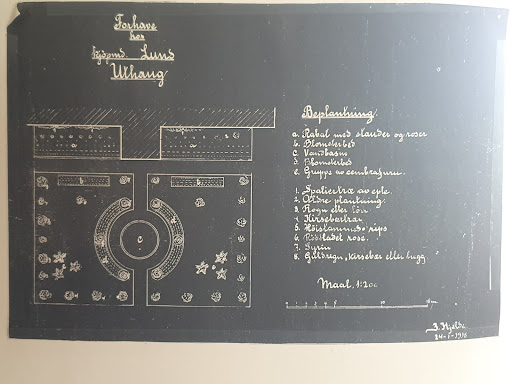 Forhave
hos
kjøpmd. Lund
Uthaug
Beplantning.
a. Rabat med stauder og roser
b. Blomsterbed
c. Vandbasin
d. Blomsterbed
e. Gruppe av cembrafuru.
1. Spaliertræ av eple.
2. Ældre plantning.
3. Rogn eller
4. Kirsebærtræ
5. Høistammede rips
6. Rødbladet rose.
7. Syrin
8. Guldregn, kirsebær eller hegg
Maal, 1:200
J. Hjelde
24-1-1916
b
b
c